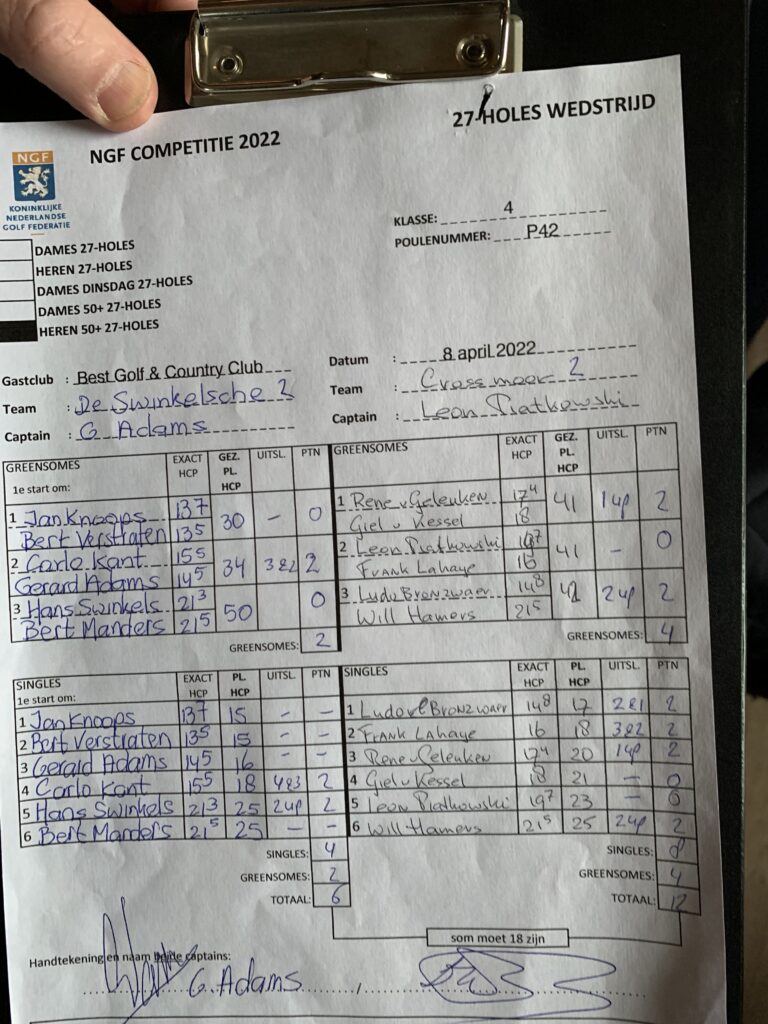 27-HOLES WEDSTRIJD
NGF COMPETITIE 2022
NGF
KONINKLIJKE
NEDERLANDSE
GOLF FEDERATIE
KLASSE: 4
POULENUMMER: P42
DAMES 27-HOLES
HEREN 27-HOLES
DAMES DINSDAG 27-HOLES
DAMES 50+ 27-HOLES
HEREN 50+ 27-HOLES
Gastclub : Best Golf & Country Club Datum : 8 april 2022
Team : De Swinkelsche 2 Team : Crossmoor 2
Captain : G. Adams Captain : Leon Piatkowski
GREENSOMES EXACT HCP GEZ. PL. HCP UITSL. PTN GREENSOMES EXACT HCP GEZ. PL. HCP UITSL. PTN
1e start om:
1 Jan Knoops 137 30 – 0 1 Rene v Geleuken 174 41 1up 2
Bert Verstraten 135 Giel v Kessel 18
2 Carlo Kant 155 34 3&2 2 2 Leon Piatkowski 197 41 – 0
Gerard Adams 145 Frank Lahaye 16
3 Hans Swinkels 213 50 0 3 Ludo Bronzwaer 148 42 2up 2
Bert Manders 215 Will Hamers 215
GREENSOMES: 2 GREENSOMES: 4
SINGLES EXACT HCP PL. HCP UITSL. PTN SINGLES EXACT HCP PL. HCP UITSL. PTN
1e start om:
1 Jan Knoops 137 15 – – 1 Ludo Bronzwaer 148 17 2&1 2
2 Bert Verstraten 135 15 – – 2 Frank Lahaye 16 18 3&2 2
3 Gerard Adams 145 16 – – 3 Rene v Geleuken 174 20 1up 2
4 Carlo Kant 155 18 4&3 2 4 Giel v Kessel 18 21 – 0
5 Hans Swinkels 213 25 2up 2 5 Leon Piatkowski 197 23 – 0
6 Bert Manders 215 25 – – 6 Will Hamers 215 25 2up 2
SINGLES: 4 SINGLES: 8
GREENSOMES: 2 GREENSOMES: 4
TOTAAL: 6 TOTAAL: 12
som moet 18 zijn
Handtekening en naam beide captains:
G. Adams ,